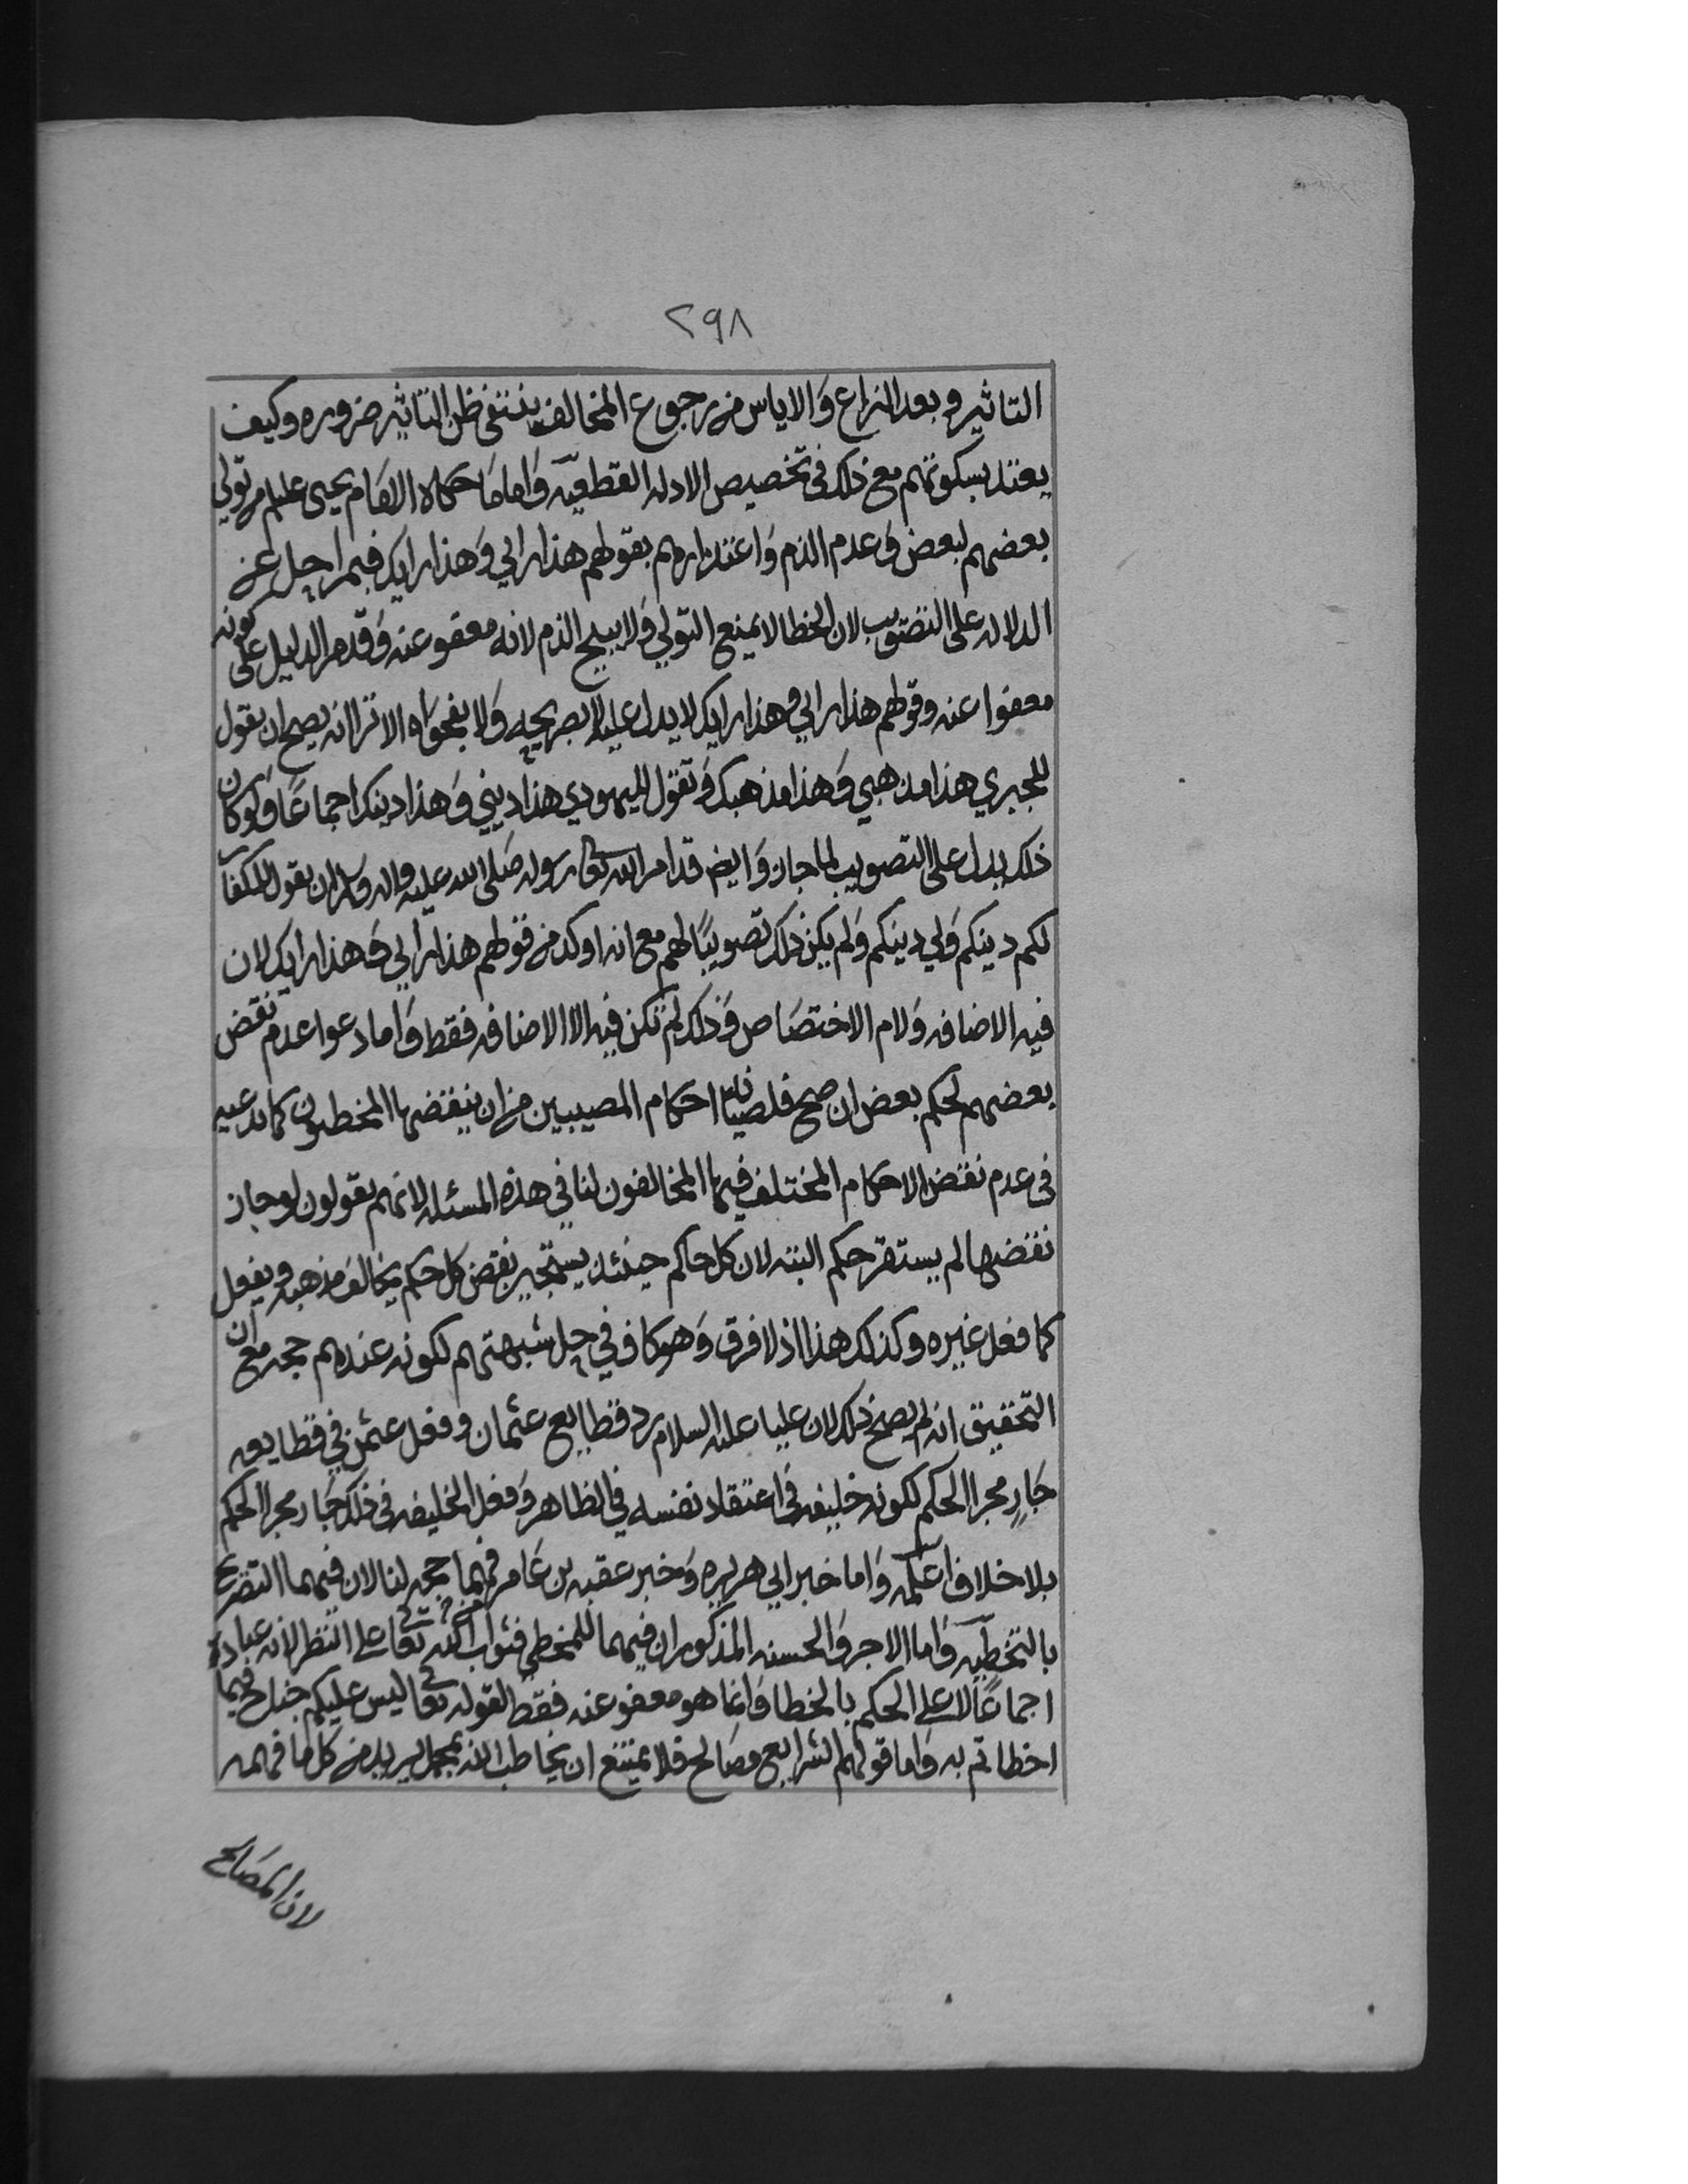 ٢٩٨
التاثير وبعد النزاع وَالاياس من رجوع المخالف ينتفي ظن التاثير ضروره وكيف
يعتد بسكوتهم مع ذلك في تخصيص الادله القطعيّه وَاما مَا حكاه الامَام يحيى عليلم من تولي
بعضهم لبعض وَعدم الذم وَاعتذارهم بقولهم هذا رايي وَهذا رايك فبمراحل عن
الدلاله على التصَويب لان الخطا لا يمنع التولي وَلا يبيح الذم لانه معفو عنه وَقد مر الدليل على كونه
معفوا عنه وقولهم هذا رايي وهذا رايك لا يدل عليه لا بصريحه وَلا بفحوَاه الا ترا انه يصح ان يقول
للجبري هذا مذهبي وَهذا مذهبك وَتقول لليهودي هذا ديني وَهذا دينك اجماعًا وَلوكان
ذلك يدل على التصويب لما جاز وَايضا قد امر الله تعالى رسوله صَلى الله عليه واله وسلم ان يقول للكفار
لكم دينكم وَلي دينكم وَلم يكن ذلك تصويبًا لهم مع انه اوكد من قولهم هذا رأيي وَهذا رايك لان
فيه الاضافه وَلام الاختصَاص وَذلك لم تكن فيه الا الاضافه فقط وَاما دعوا عدم نقض
بعضهم لحكم بعض ان صح فلصيانة احكام المصيبين من ان ينقضها المخطيون كما يدعيه
في عدم نقض الاحكام المختلف فيها المخالفون لنا في هذه المسئله لانهم يقولون لو جاز
نقضها لم يستقر حكم البته لان كل حاكم حينئذ يستجيز نقض كل حكم يخالف مذهبه ويفعل
كما فعل غيره وكذلك هذا اذ لا فرق وَهو كاف في حل شبهتهم لكونه عندهم حجه مع ان
التحقيق انه لم يصح ذلك لان عليا عليه السلام رد قطايع عثمان وفعل عثمن في قطايعه
جَارٍ مجرا الحكم لكونه خليفه في اعتقاد نفسه في الظاهر وَفعل الخليفه في ذلك جَار مجرا الحكم
بلا خلاف اعلمه وَاما خبر ابي هريره وَخبر عقبه بن عَامر فهما حجه لنا لان فيهما التصريح
بالتخطيّه وَاما الاجر وَالحسنه المذكوران فيهما للمخطي فثواب من الله تعالى على النظر لانه عبادة
اجماعًا لا على الحكم بالخطا وَانما هو معفو عنه فقط لقوله تعالى ليس عليكم جناح فيما
اخطاتم به وَاما قولهم الشرايع مصَالح فلا يمتنع ان يخاطب الله بمجمل يريد من كل ما فهمه
لان المصَالح